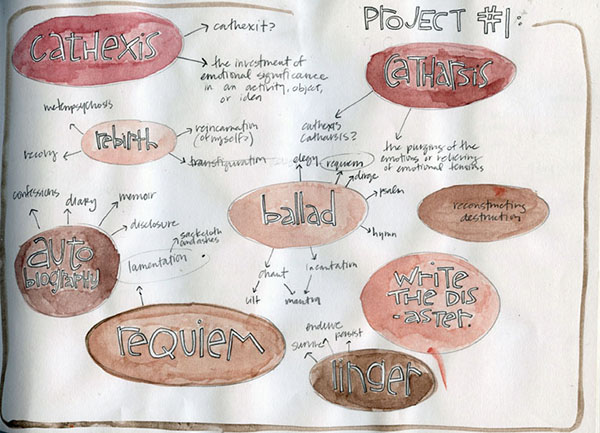 PROJECT #1:
CATHEXIS
cathexit?
the investment of
emotional significance
in an activity, object,
or idea
CATHARSIS
cathexis
catharsis?
the purging of the
emotions or relieving
of emotional tensions
metempsychosis
rebirth
reincarnation
(of myself?)
transfiguration
elegy
requiem
dirge
psalm
hymn
ballad
chant
incantation
lilt
mantra
reconstructing
destruction
confessions
diary
memoir
disclosure
autobiography
sackcloth
and ashes
lamentation
WRITE
THE DIS
-ASTER.
REQUIEM
endure
persist
survive
linger